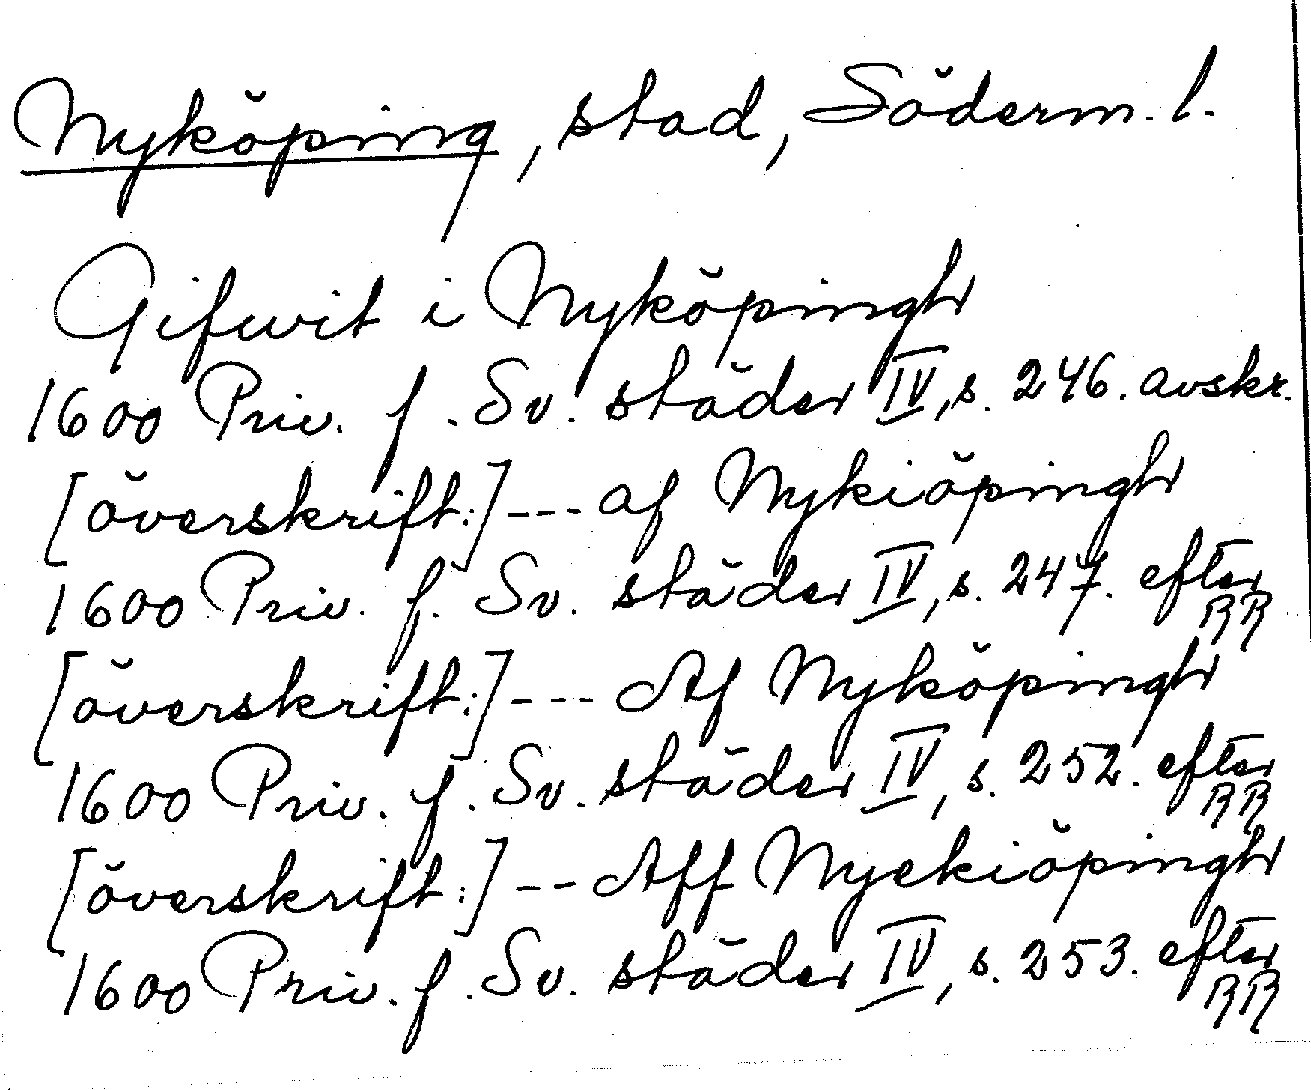 Nyköping, stad, Söderm. l.
Gifwit i Nyköpingh
1600 Priv. f. Sv. städer IV, s. 246. avskr.
[överskrift:] --- af Nykiöpingh
1600 Priv. f. Sv. städer IV, s. 247. efter RR
[överskrift:] --- Af Nyköpingh
1600 Priv. f. Sv. städer IV, s. 252. efter RR
[överskrift:] --- Aff Nyekiöpingh
1600 Priv. f. Sv. städer IV, s. 253. efter RR